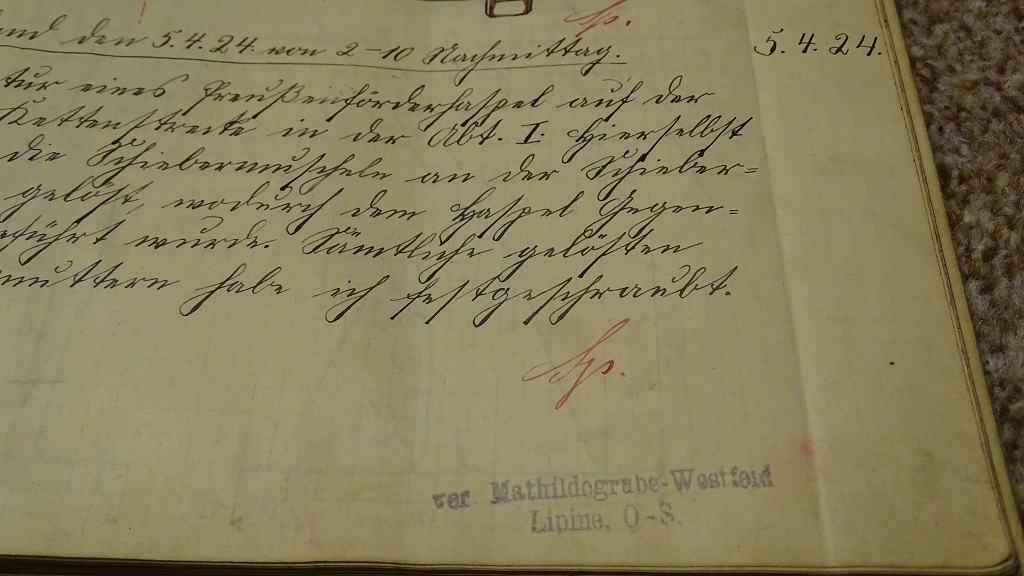 Sp.
und den 5.4.24. von 2-10 Nachmittag.
5.4.24.
tur eines Preußenförderhaspel auf der
Kettenstrecke in der Abt. I. Hierselbst
die Schiebermuscheln an der Schieber=
gelöst, wodurch dem Haspel Gegen=
führt wurde. Sämtliche gelösten
muttern habe ich festgeschraubt.
Sp.
ver Mathildegrube-Westfeld
Lipine, O-S.